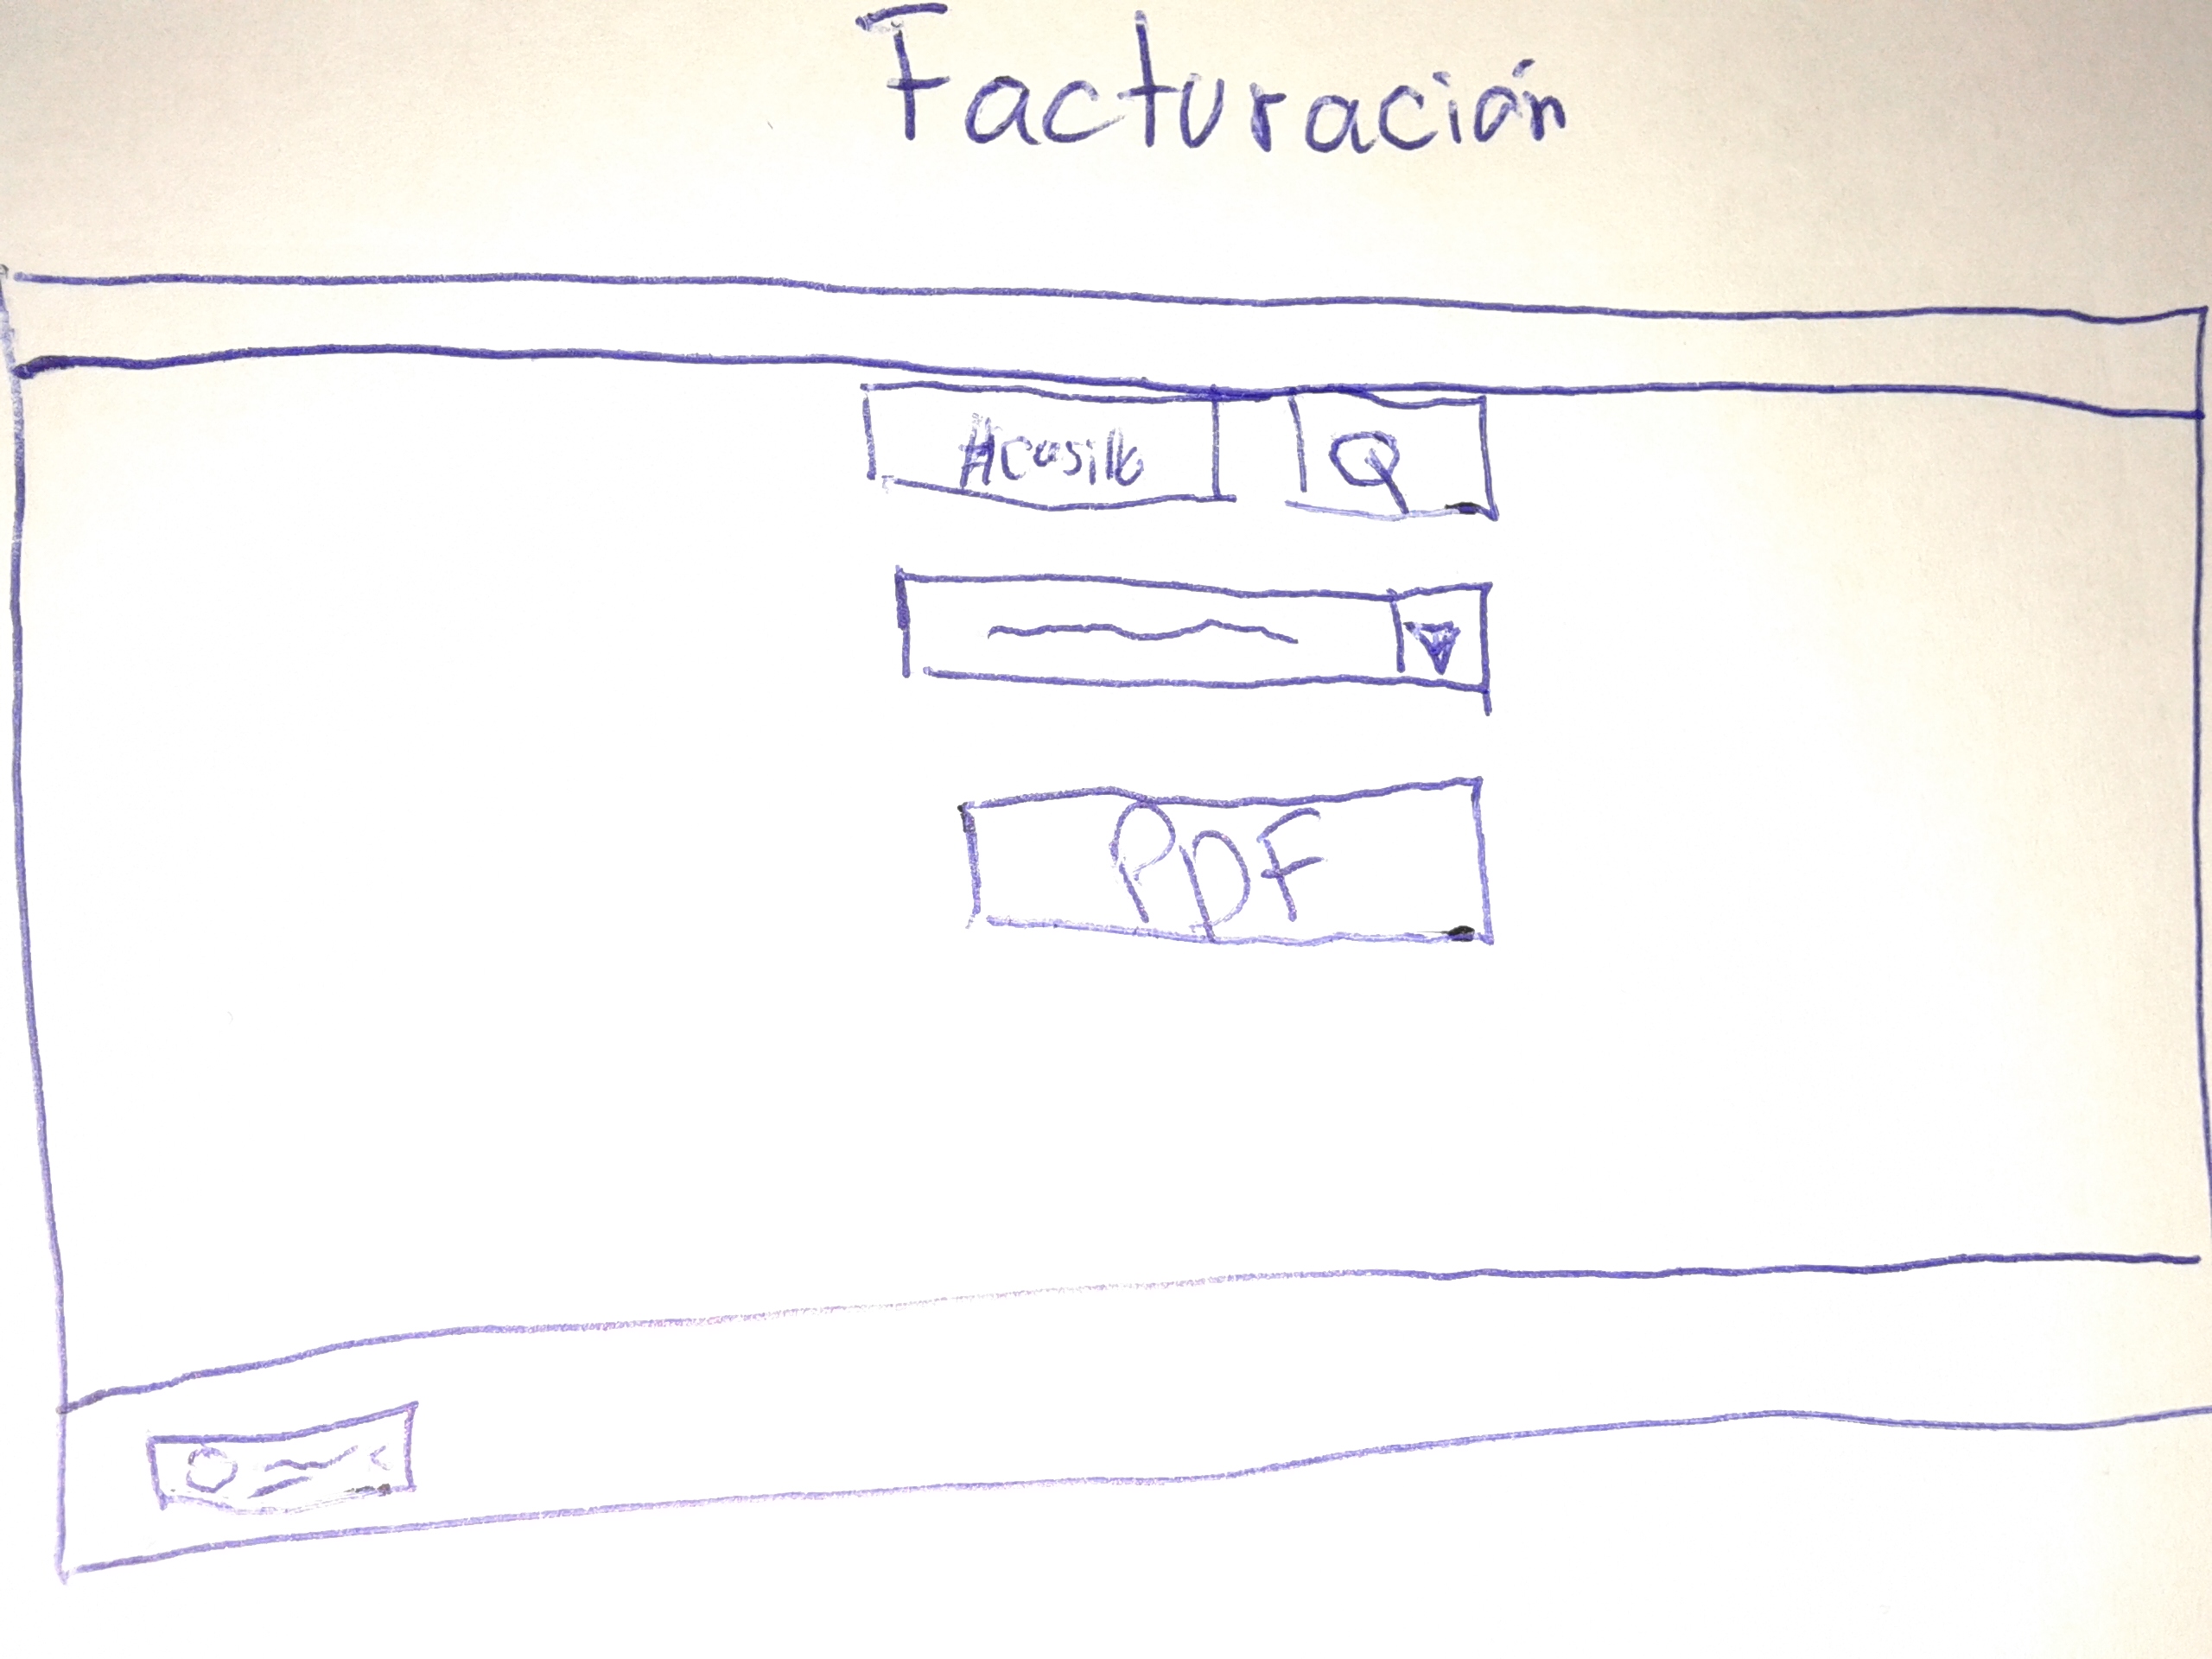 Facturación
#casilla
PDF